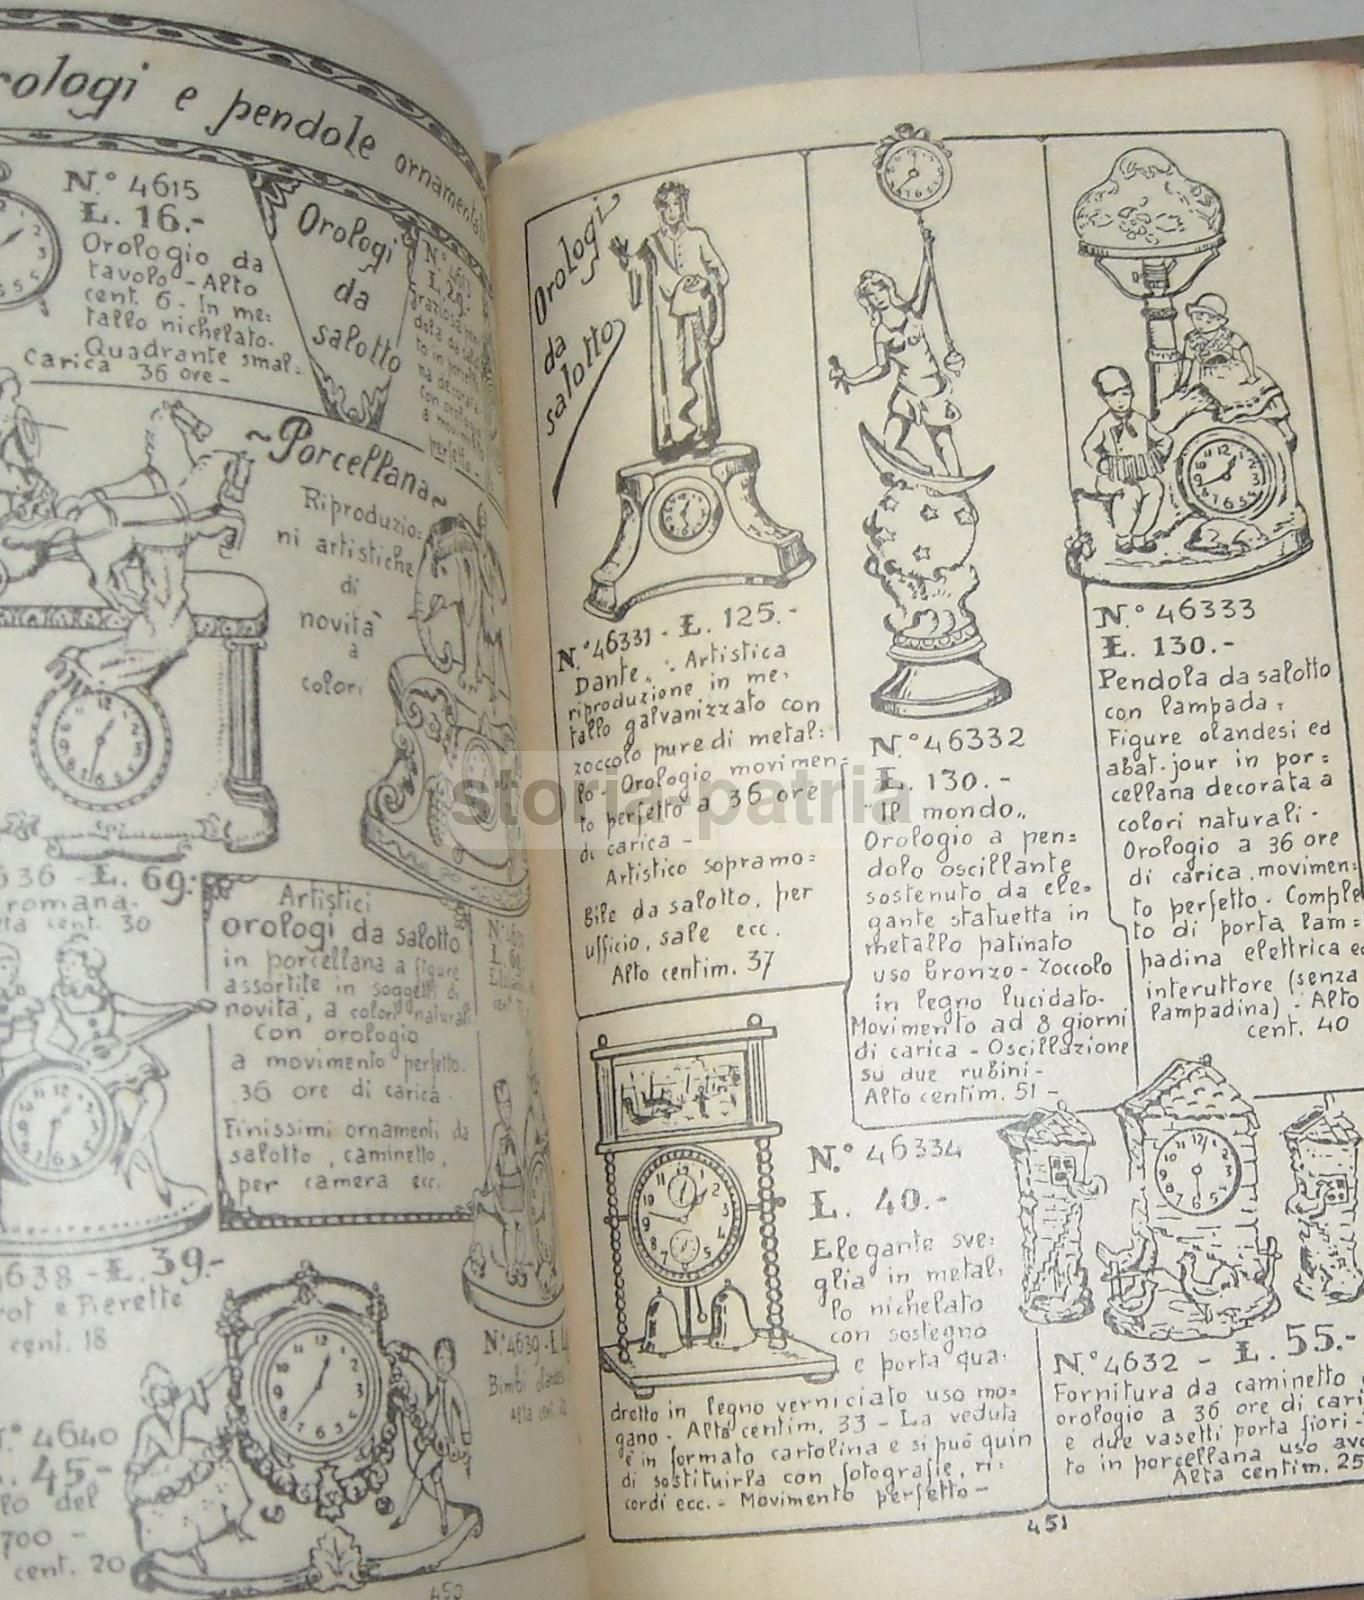 Orologi e pendole ornamentali
N.° 4615
L. 16.-
Orologio da
tavolo - Alto
cent. 6 - In me:
tallo nichelato.
Quadrante smal:
Carica 36 ore -
Orologi
da
salotto
L. 29.-
~Porcellana~
Riproduzio:
ni artistiche
di
novità
a
colori
L. 69.-
romana.
cent. 30
Artistici
orologi da salotto
in porcellana a figure
assortite in soggetti di
novità, a colori naturali
con orologio
a movimento perfetto.
36 ore di carica.
Finissimi ornamenti da
salotto, caminetto,
per camera ecc.
4638 - L. 39.-
e Pierette
cent. 18
N.° 4639 - L.
Bimbi
N.° 4640
L. 45.-
del
700 -
cent. 20
450
Orologi
da
salotto
N.° 46331 - L. 125.-
Dante „ Artistica
riproduzione in me:
tallo galvanizzato con
zoccolo pure di metal:
lo - Orologio movimen:
to perfetto a 36 ore
di carica -
Artistico sopramo:
bile da salotto, per
ufficio, sale ecc.
Alto centim. 37
N.° 46332
L. 130.-
"Il mondo„
Orologio a pen:
dolo oscillante
sostenuto da ele:
gante statuetta in
metallo patinato
uso bronzo - Zoccolo
in legno lucidato.
Movimento ad 8 giorni
di carica - Oscillazione
su due rubini -
Alto centim. 51 -
N.° 46333
L. 130.-
Pendola da salotto
con lampada.
Figure olandesi ed
abat-jour in por:
cellana decorata a
colori naturali.
Orologio a 36 ore
di carica, movimen:
to perfetto. Comple
to di porta lam:
padina elettrica ed
interuttore (senza
lampadina) - Alto
cent. 40
N.° 46334
L. 40.-
Elegante sve:
glia in metal:
lo nichelato
con sostegno
e porta qua:
dretto in legno verniciato uso mo:
gano - Alta centim. 33 - La veduta
è in formato cartolina e si può quin
di sostituirla con fotografie, ri:
cordi ecc. - Movimento perfetto -
N.° 4632 - L. 55.-
Fornitura da caminetto
orologio a 36 ore di cari
e due vasetti porta fiori -
to in porcellana uso avo
Alta centim. 25
451
storia-patria